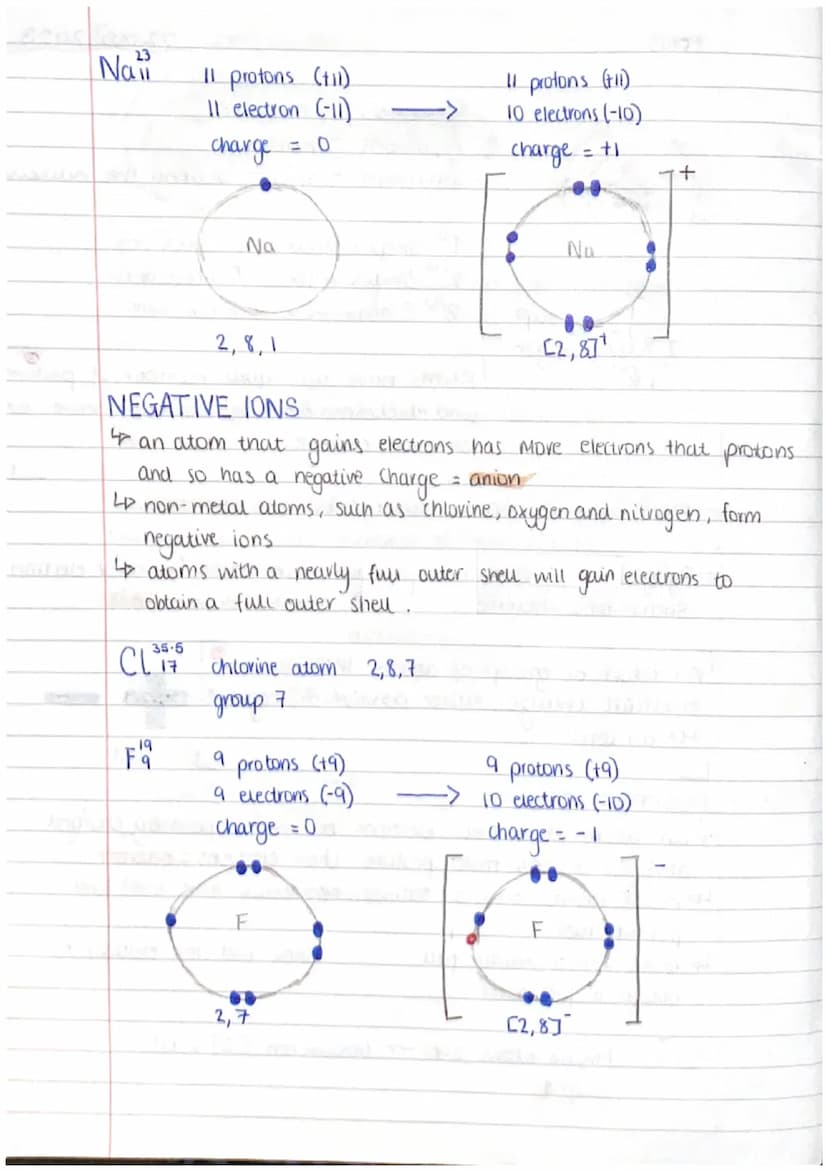 Na 23 11 11 protons (+11) 11 protons (+11)
11 electron (-11) → 10 electrons (-10)
charge = 0 charge = +1
Na [Na]+
2, 8, 1 [2, 8]+
NEGATIVE IONS
↳ an atom that gains electrons has more electrons that protons
and so has a negative charge = anion
↳ non-metal atoms, such as chlorine, oxygen and nitrogen, form
negative ions
↳ atoms with a nearly full outer shell will gain electrons to
obtain a full outer shell.
Cl 35.5 17 chlorine atom 2,8,7
group 7
F 19 9 9 protons (+9) 9 protons (+9)
9 electrons (-9) → 10 electrons (-10)
charge = 0 charge = -1
F [F]-
2,7 [2,8]-